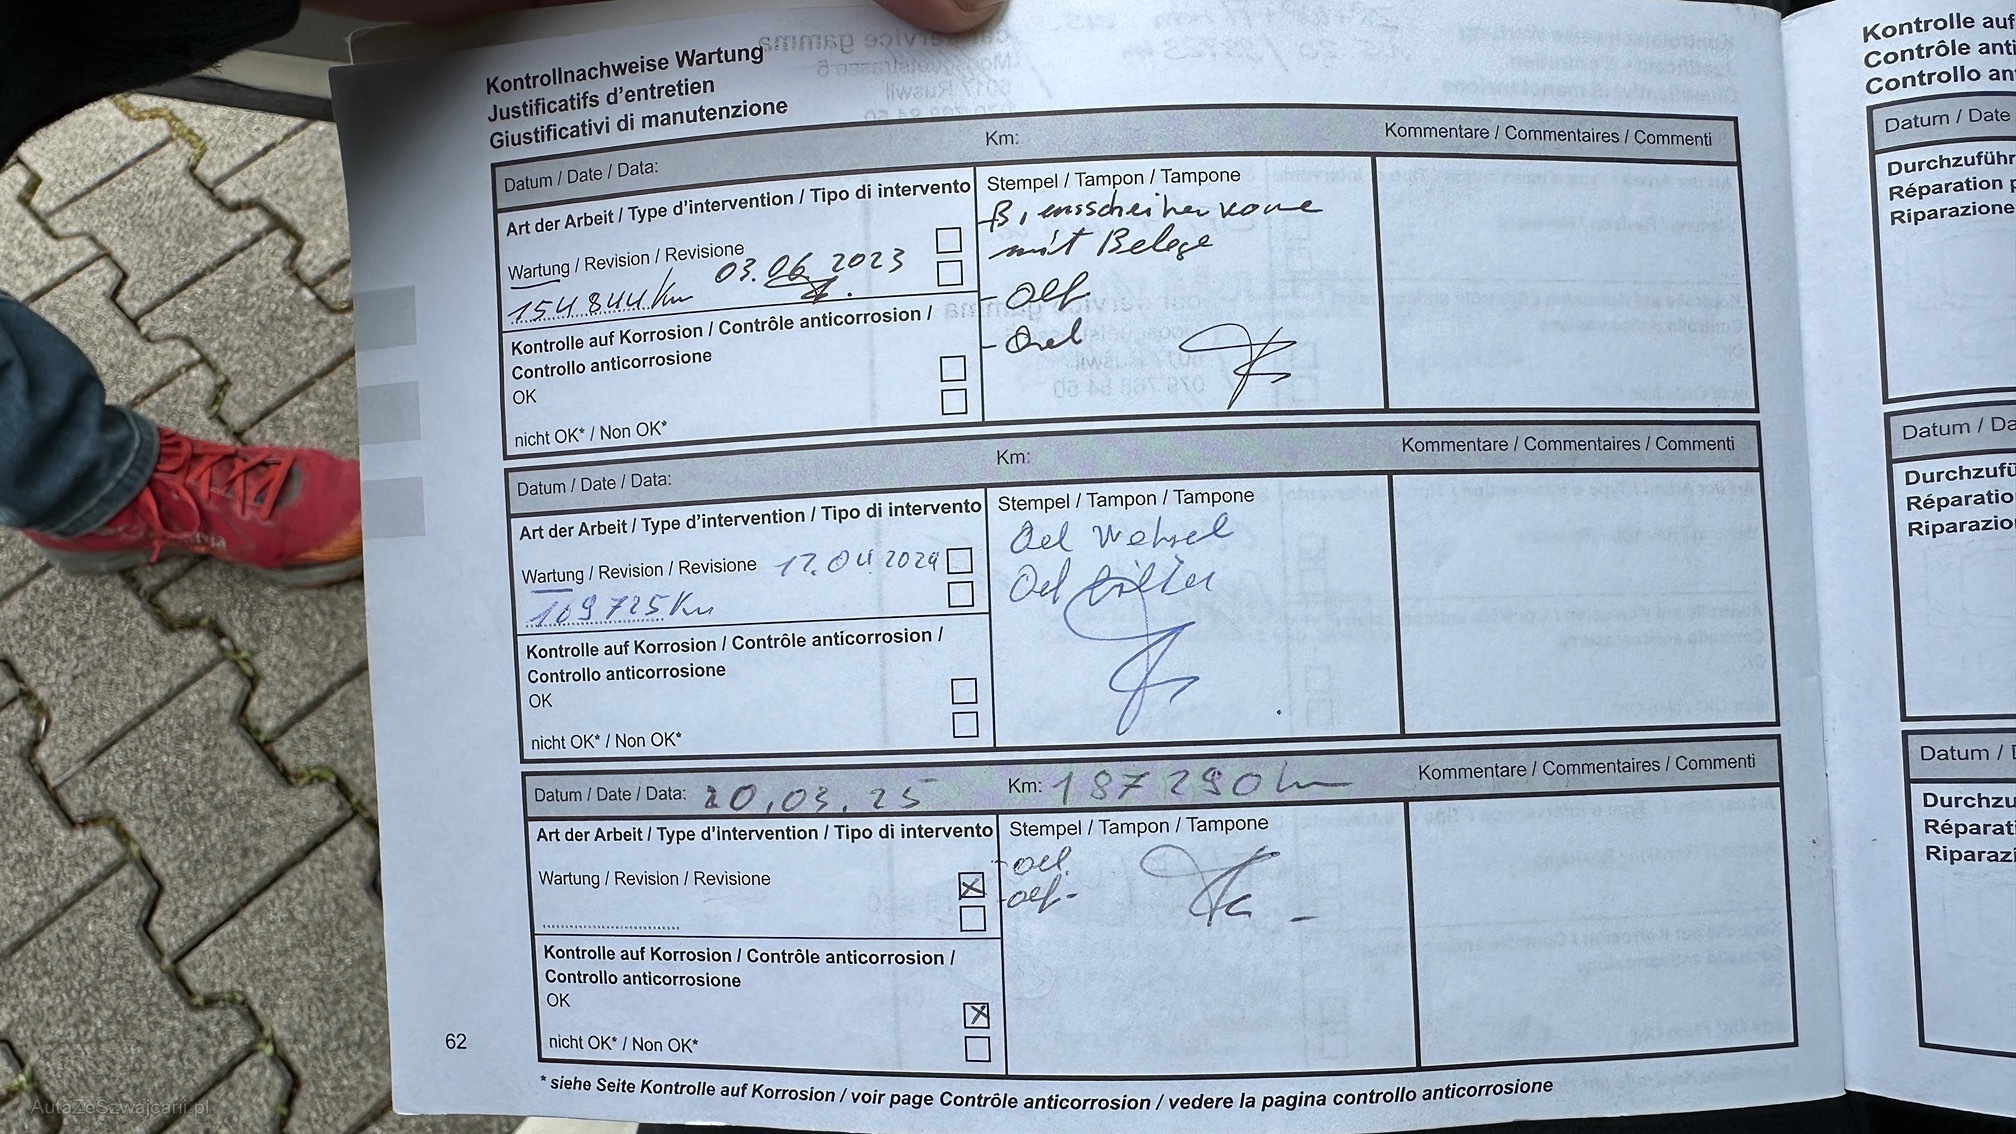 Kontrollnachweise Wartung
Justificatifs d'entretien
Giustificativi di manutenzione
Datum / Date / Data:
Km:
Kommentare / Commentaires / Commenti
Art der Arbeit / Type d'intervention / Tipo di intervento
Stempel / Tampon / Tampone
Wartung / Revision / Revisione
03.06.2023
154844 Km
mit Belege
- Oelf
- Oel
Kontrolle auf Korrosion / Contrôle anticorrosion /
Controllo anticorrosione
OK
nicht OK* / Non OK*
Datum / Date / Data:
Km:
Kommentare / Commentaires / Commenti
Art der Arbeit / Type d'intervention / Tipo di intervento
Stempel / Tampon / Tampone
Wartung / Revision / Revisione 17.04.2024
169725 Km
Oel
Oel Filter
Kontrolle auf Korrosion / Contrôle anticorrosion /
Controllo anticorrosione
OK
nicht OK* / Non OK*
Datum / Date / Data: 20.03.25
Km: 187290 km
Kommentare / Commentaires / Commenti
Art der Arbeit / Type d'intervention / Tipo di intervento
Stempel / Tampon / Tampone
Wartung / Revision / Revisione
- oel.
- oelf-
Kontrolle auf Korrosion / Contrôle anticorrosion /
Controllo anticorrosione
OK
nicht OK* / Non OK*
62
* siehe Seite Kontrolle auf Korrosion / voir page Contrôle anticorrosion / vedere la pagina controllo anticorrosione
Kontrolle auf
Contrôle anti
Controllo an
Datum / Date
Durchzuführ
Réparation p
Riparazione
Datum / Da
Durchzufü
Réparatio
Riparazio
Datum /
Durchzu
Réparati
Riparazi
AutaZeSzwajcarii.pl